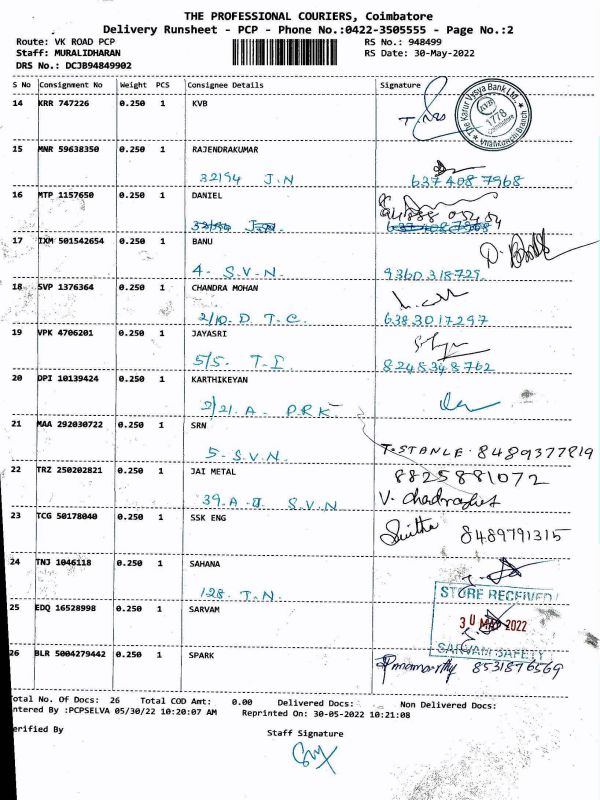 THE PROFESSIONAL COURIERS, Coimbatore
Delivery Runsheet - PCP - Phone No.:0422-3505555 - Page No.:2
Route: VK ROAD PCP RS No.: 948499
Staff: MURALIDHARAN RS Date: 30-May-2022
DRS No.: DCJB94849902
S No Consignment No Weight PCS Consignee Details Signature
14 KRR 747226 0.250 1 KVB
The Karur Vysya Bank Ltd., KVB 1778 Coimbatore Branch
15 MNR 59638350 0.250 1 RAJENDRAKUMAR
32/94 J.N 637 408 7968
16 MTP 1157650 0.250 1 DANIEL
17 IXM 501542654 0.250 1 BANU
4- S.V.N- 9360318729
18 SVP 1376364 0.250 1 CHANDRA MOHAN
2/10-D T.C. 6383017297
19 VPK 4706201 0.250 1 JAYASRI
5/5- T-I 8248348762
20 DPI 10139424 0.250 1 KARTHIKEYAN
2/21.A - P.R.K-
21 MAA 292030722 0.250 1 SRN
5- S.V.N. T.STANLE. 8489377819
22 TRZ 250202821 0.250 1 JAI METAL 8825881072
39.A- S.V.N V.
23 TCG 50178040 0.250 1 SSK ENG
8489791315
24 TNJ 1046118 0.250 1 SAHANA
128. T.N.
STORE RECEIVED
25 EDQ 16528998 0.250 1 SARVAM
30 MAY 2022
SARVAM SAFETY
26 BLR 5004279442 0.250 1 SPARK 8531876569
otal No. Of Docs: 26 Total COD Amt: 0.00 Delivered Docs: Non Delivered Docs:
ntered By :PCPSELVA 05/30/22 10:20:07 AM Reprinted On: 30-05-2022 10:21:08
erified By Staff Signature